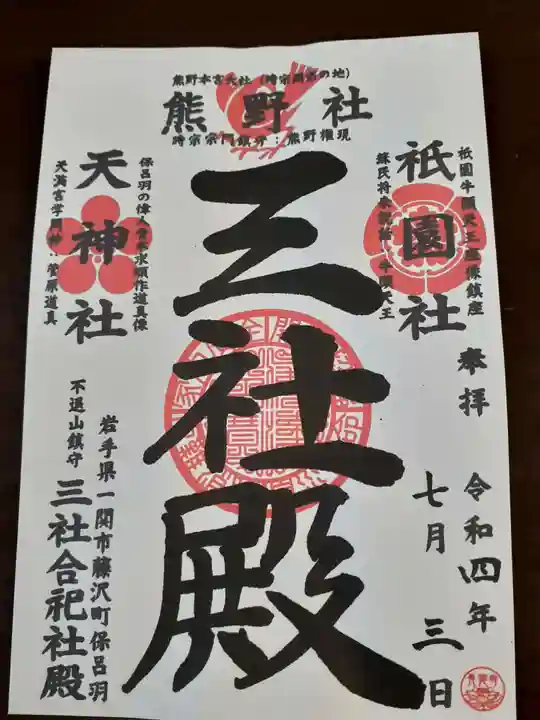 熊野本宮大社
熊野社
時宗宗門鎮守:熊野権現
祇園社
祇園牛頭天王
鎮座
蘇民将来
牛頭天王
三社殿
天神社
保呂羽の偉人
作道具像
天満宮学問神:菅原道具
奉拝
令和四年
七月三日
岩手県一関市藤沢町保呂羽
不退山鎮守
三社合祀社殿